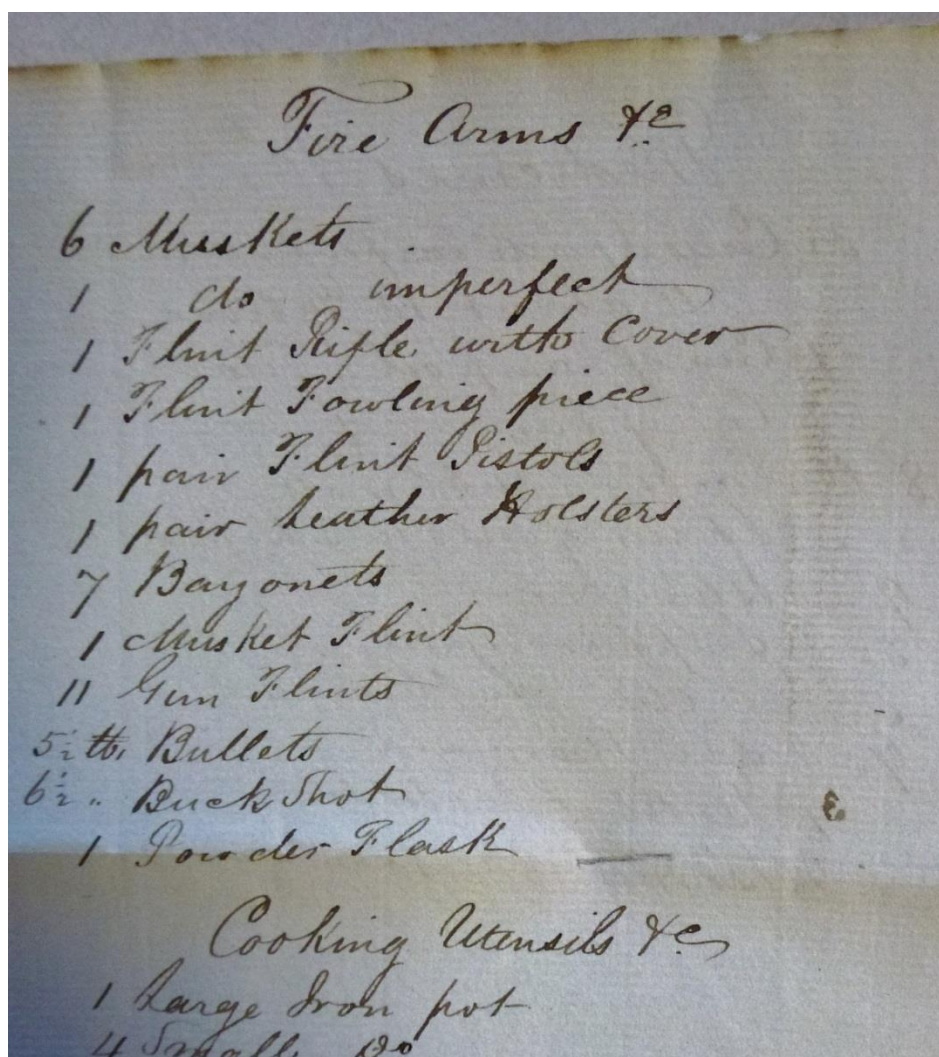 Fire Arms &c
6 Muskets
1 do imperfect
1 Flint Rifle with Cover
1 Flint Fowling piece
1 pair Flint Pistols
1 pair Leather Holsters
7 Bayonets
1 Musket Flint
11 Gun Flints
5½ lb. Bullets
6½ " Buck Shot
1 Powder Flask
Cooking Utensils &c
1 Large Iron pot
4 Small do